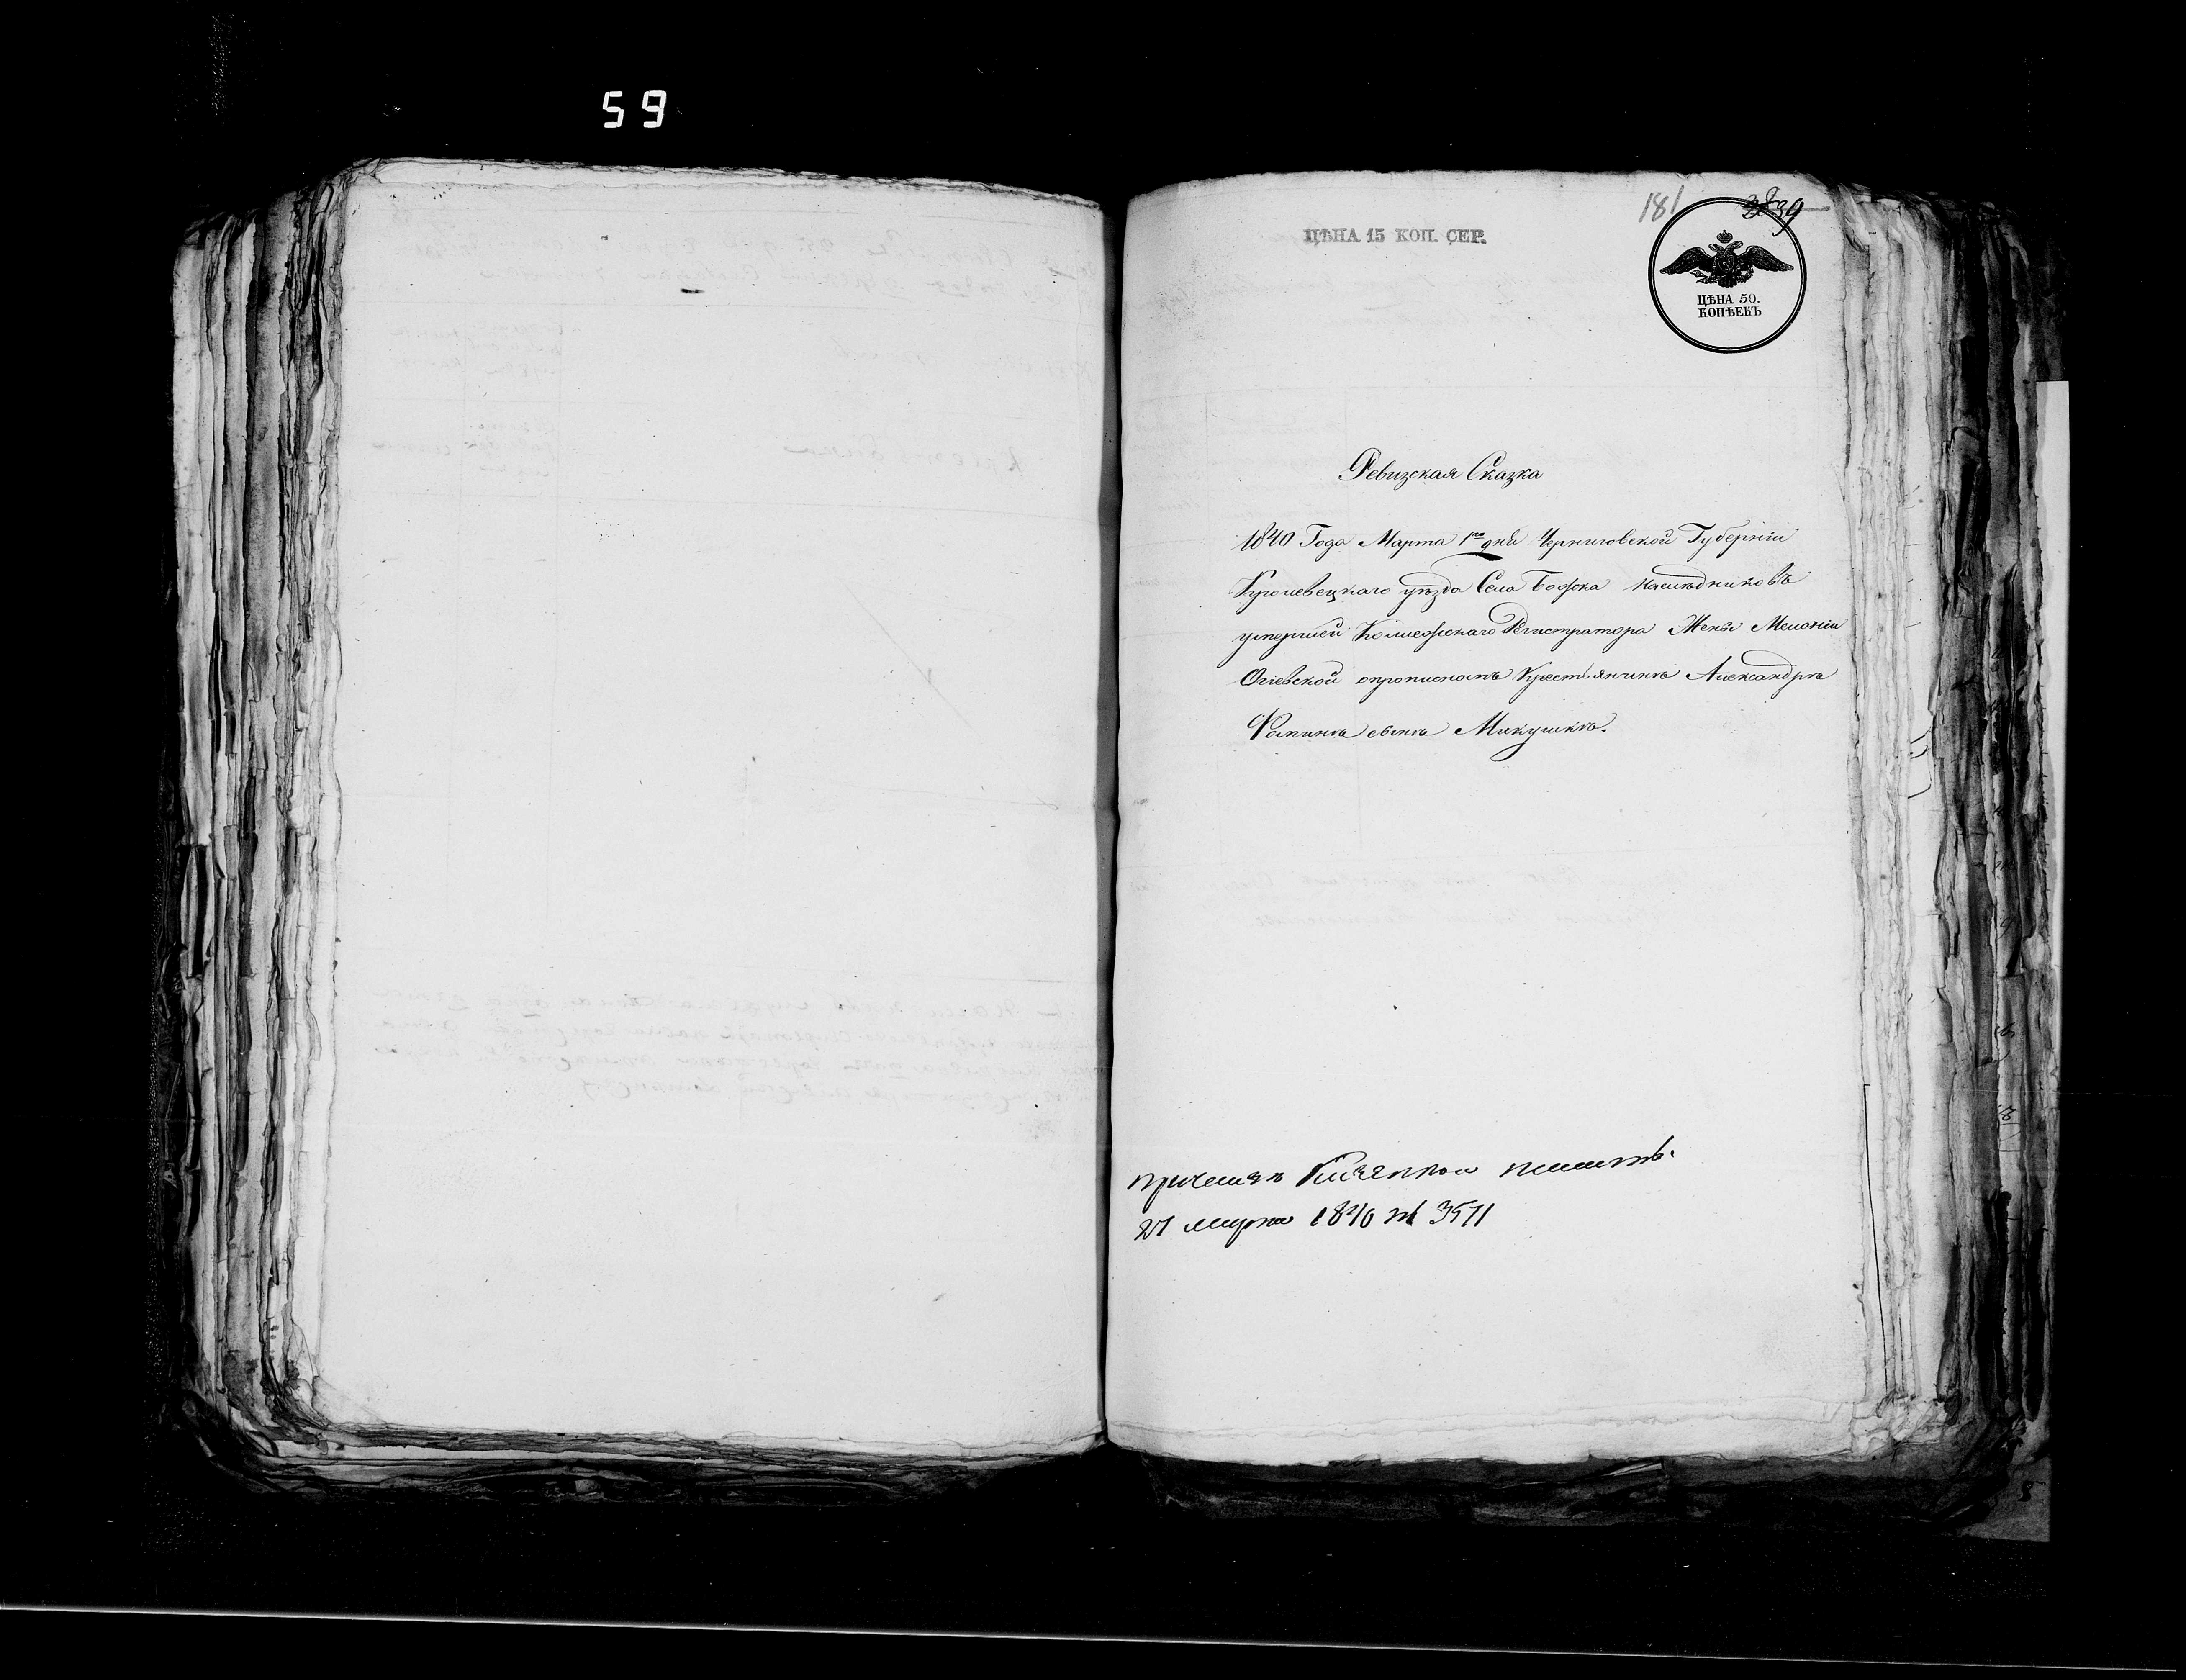 59
181
ЦѢНА 15 КОП. СЕР.
ЦѢНА 50.
КОПѢЕКЪ
Ревизская Сказка
1840 Года Марта 1го дня Черниговской Губерніи
Кролевецкаго уѣзда Села Божка наслѣдниковъ
умершей Коллежскаго Регистратора Жены Меланіи
Огіевской о прописномъ Крестьянинѣ Александрѣ
сынѣ Микушкѣ.
при указѣ Казенной Палаты
27 марта 1840 № 3571